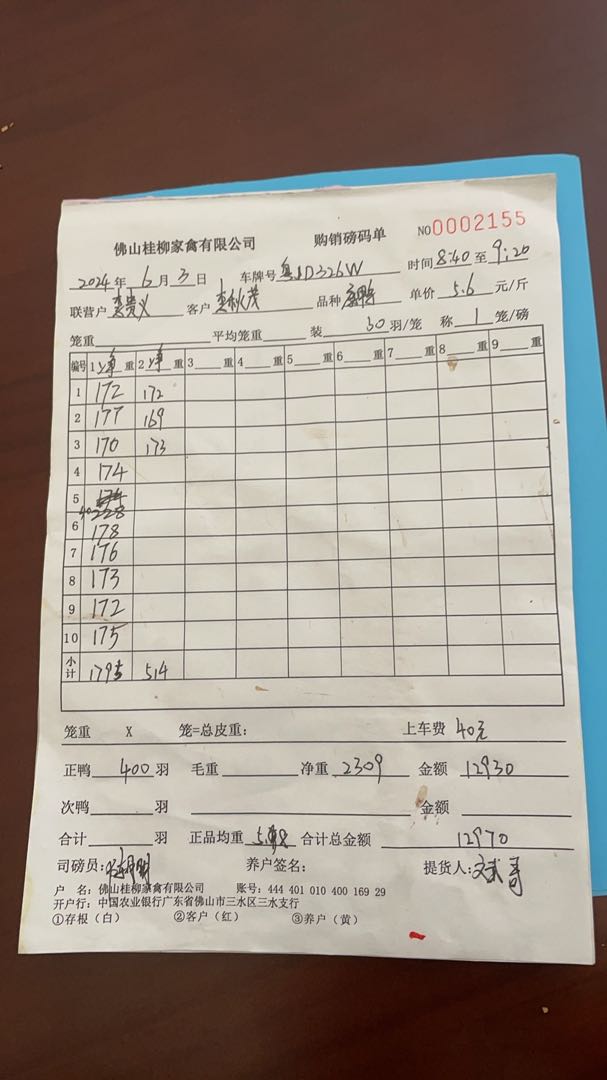 佛山桂柳家禽有限公司 购销磅码单 NO0002155
2024年6月3日 车牌号 粤JD326W 时间8:40至9:20
联营户 客户 品种 单价 5.6 元/斤
笼重 平均笼重 装 30 羽/笼 称 1 笼/磅
编号 1 净 重 2 净 重 3 重 4 重 5 重 6 重 7 重 8 重 9 重
1 172 172
2 177 169
3 170 173
4 174
5 228
6 178
7 176
8 173
9 172
10 175
小计 1795 514
笼重 X 笼=总皮重: 上车费 40元
正鸭 400 羽 毛重 净重 2309 金额 12930
次鸭 羽 金额
合计 羽 正品均重 合计总金额 12970
司磅员: 养户签名: 提货人:
户 名: 佛山桂柳家禽有限公司 账号: 444 401 010 400 169 29
开户行: 中国农业银行广东省佛山市三水区三水支行
①存根(白) ②客户(红) ③养户(黄)